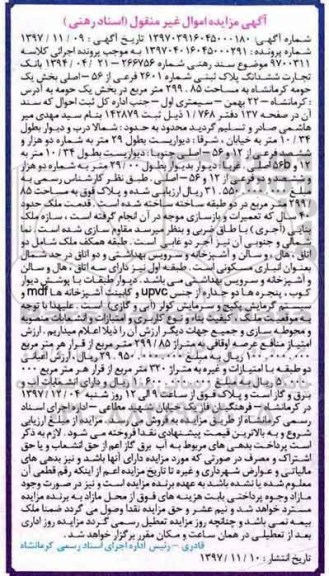 آگهی مزایده اموال غیر منقول (اسناد رهنی)
شماره آگهی: ۱۳۹۷۰۳۹۱۶۰۴۵۰۰۰۱۸۰ تاریخ آگهی: ۱۳۹۷/۱۱/۰۹
شماره پرونده: ۱۳۹۷۰۴۰۱۶۰۴۵۰۰۰۲۹۱ به موجب پرونده اجرائی کلاسه
۹۷۰۰۳۱۱ موضوع سند رهنی شماره ۲۶۶۷۵۶ - ۱۳۹۴/۰۴/۲۱ بانک
تجارت ششدانگ پلاک ثبتی شماره ۲۶۰۱ فرعی از ۵۶ - اصلی بخش یک
حومه کرمانشاه به مساحت ۲۹۹.۸۵ متر مربع در بخش یک حومه به آدرس
: کرمانشاه - ۲۲ بهمن - سیمتری اول - جنب اداره کل ثبت احوال که سند
آن در صفحه ۱۳۷ دفتر ۱/۷۶۸ ذیل ثبت ۱۴۲۸۷۹ بنام سید مهدی میر
هاشمی صادر و تسلیم گردید محدود به حدود: شمالا درب و دیوار بطول
به خیابان، شرقا: دیواریست بطول ۲۹ متر به شماره دو هزار و
ششصد و
متر به شماره دو هزار و
ششصد و دو فرعی از ۱۲ و ۵۶ - اصلی طبق نظر کارشناس رسمی به
مبلغ ۳۱.۵۵۰ ریال ارزیابی شده و پلاک فوق به مساحت ۸۵
/۲۹۹ متر مربع در دو طبقه ساخته ساخته شده است. قدمت ملک حدود
۴۰ سال که تعمیرات و بازسازی موجه در آن انجام گرفته است، سازه ملک
بنایی (آجری) با طاق ضربی و بنظر میرسد مقاوم سازی شده است. نما
شمالی و جنوبی آن نیز آجر دو غابی است. طبقه همکف ملک شامل دو
اتاق، هال، و سالن و آشپزخانه و سرویس بهداشتی و دو اتاق در جد شمال
بعنوان انباری مسکونی است. طبقه اول نیز دارای سه اتاق، هال و سالن
و آشپزخانه و سرویس بهداشتی می باشد. دیوار طبقات با پوشش دیوار
کوب، پنجره ها دو جداره از جنس upvc و کابینت آشپزخانه ها mdf و
سیستم گرمایش پکیج و سرمایش کولر آبی و گازی است. علیهذا با توجه
به موقعیت ملک، کیفیت بناو نوع کاربری و امتیازات و انشعابات منصوبه
و محوطه سازی و جمیع جهات دیگر ارزش آن را ذیلا اعلام میداریم. ارزش
امتیاز منافع عرصه اوقافی به متراژ ۲۹۹/۸۵ متر مربع از قرار هر متر مربع
ریال به مبلغ ۲۹.۹۵۰ ریال ارزش اعیانی
دو طبقه با امتیازات و غیره به متراژ ۳۲۰ متر مربع از قرار هر متر مربع
ریال به مبلغ ریال و دارای انشعابات آب و
برق و گاز است و پلاک فوق از ساعت ۹ الی ۱۲ روز شنبه ۱۳۹۷/۱۲/۰۴
در کرمانشاه - فرهنگیان فاز یک خیابان شهید مطاعی - اداره اجرای اسناد
رسمی کرمانشاه از طریق مزایده به فروش می رسد. مزایده از مبلغ ارزیابی
شروع و به بالاترین قیمت پیشنهادی نقدا فروخته می شود. لازم به ذکر
است پرداخت بدهی های مربوط به آب برق، گاز اعم از حق انشعاب و یا حق
اشتراک و مصرف در صورتی که مورد مزایده دارای آنها باشد و نیز بدهی های
مالیاتی و عوارض شهرداری و غیره تا تاریخ مزایده اعم از اینکه رقم قطعی آن
معلوم شده یا نشده باشد به عهده برنده مزایده است و نیز در صورت وجود
مازاد وجوه پرداختی بابت هزینه های فوق از محل مازاد به برنده مزایده
مسترد خواهد شد و نیم عشر و حق مزایده نقدا وصول می گردد ضمنا ملک
بیمه نمی باشد و چنانچه روز مزایده تعطیل رسمی گردد مزایده روز اداری
بعد از تعطیلی در همان ساعت و مکان مقرر برگزار خواهد شد.
قادری - رئیس اداره اجرای اسناد رسمی کرمانشاه
تاریخ انتشار: ۱۳۹۷/۱۱/۱۰